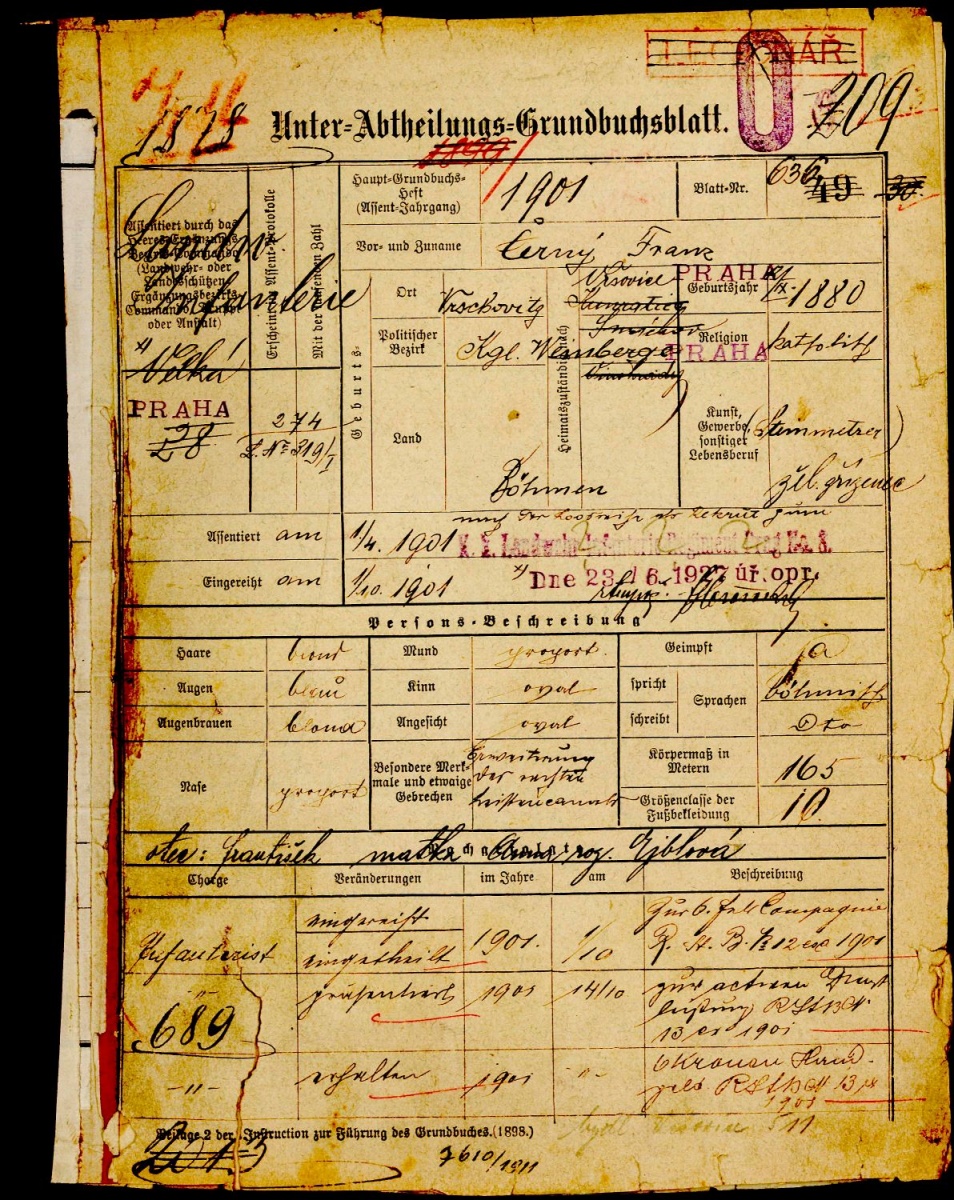 LEGIONÁŘ
1878
Unter-Abtheilungs-Grundbuchsblatt.
0
209
1899
Assentiert durch das Heeres-Ergänzungs-Bezirks-Commando (Landwehr- oder Landesschützen-Ergänzungsbezirks-Commando, Truppe oder Anstalt)
Landw.
Infanterie
Velká
PRAHA
28
Erscheint im Assent-Protokolle
Mit der laufenden Zahl
274
Haupt-Grundbuchs-Heft (Assent-Jahrgang)
1901
Blatt-Nr.
636
49
30
Vor- und Zuname
Černý Franz
Geburts-
Ort
Vrschovitz
Politischer Bezirk
Kgl. Weinberge
Land
Böhmen
Heimatszuständig nach
Vršovice
PRAHA
PRAHA
Geburtsjahr
1880
Religion
katholisch
Kunst, Gewerbe, sonstiger Lebensberuf
(Steinmetzer)
žel. zřízenec
Assentiert am
1/4. 1901
nach der Losreihe als Rekrut zum
K. k. Landwehr-Infanterie Regiment Prag No. 8.
Eingereiht am
1/10. 1901
Dne 23./6.1927 úř. opr.
Persons-Beschreibung
Haare
blond
Mund
proport.
Geimpft
ja
Augen
blau
Kinn
oval
spricht
schreibt
Sprachen
böhmisch
Dto
Augenbrauen
blond
Angesicht
oval
Nase
proport
Besondere Merkmale und etwaige Gebrechen
Erweiterung
des rechten
Leistencanals
Körpermaß in Metern
165
Größenclasse der Fußbekleidung
10
otec: František matka Anna roz. Ejblová
Charge
Veränderungen
im Jahre
am
Beschreibung
Infanterist
eingereiht
eingetheilt
1901.
1/10
zur 6. Feld Compagnie
1901
-"-
präsentiert
1901
14/10
zur activen Dienst
leistung
13 1901
689
-"-
erhalten
1901
-"-
6 Kronen Hand-
geld
13
1901
Beilage 2 der Instruction zur Führung des Grundbuches. (1898.)
7610/1911